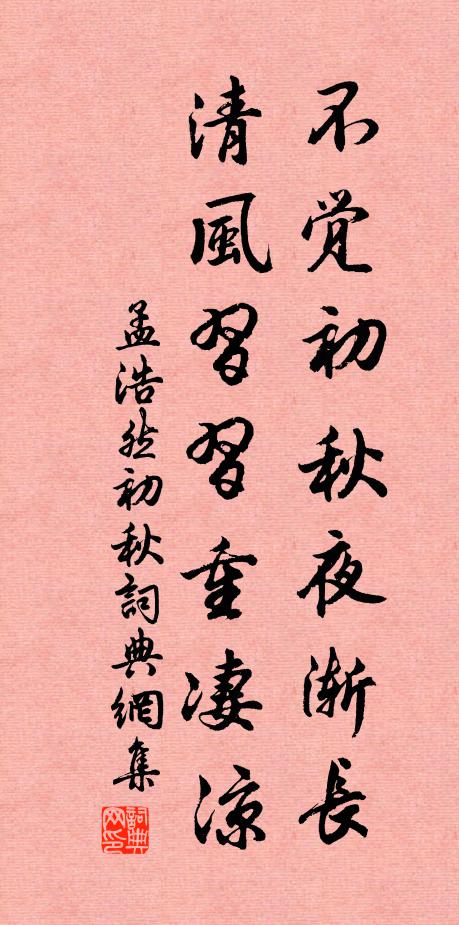 不觉初秋夜漸長
清風習習重凄涼
孟浩然初秋詞典網集
詞典网印